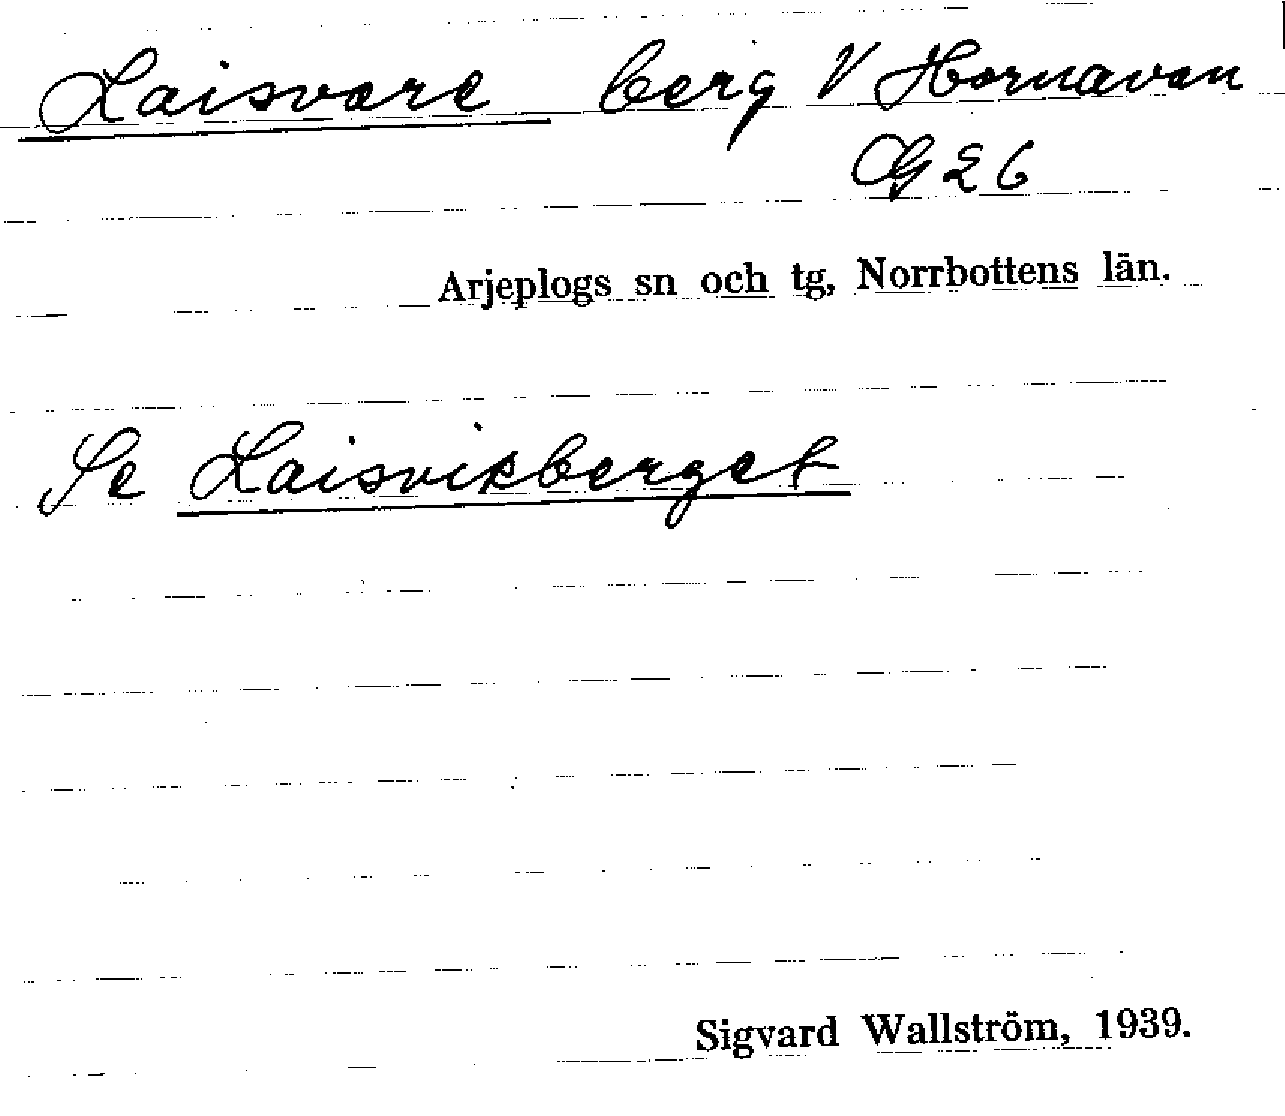 Laisvare berg V Hornavan
CG 26
Arjeplogs sn och tg, Norrbottens län.
Se Laisvikberget
Sigvard Wallström, 1939.